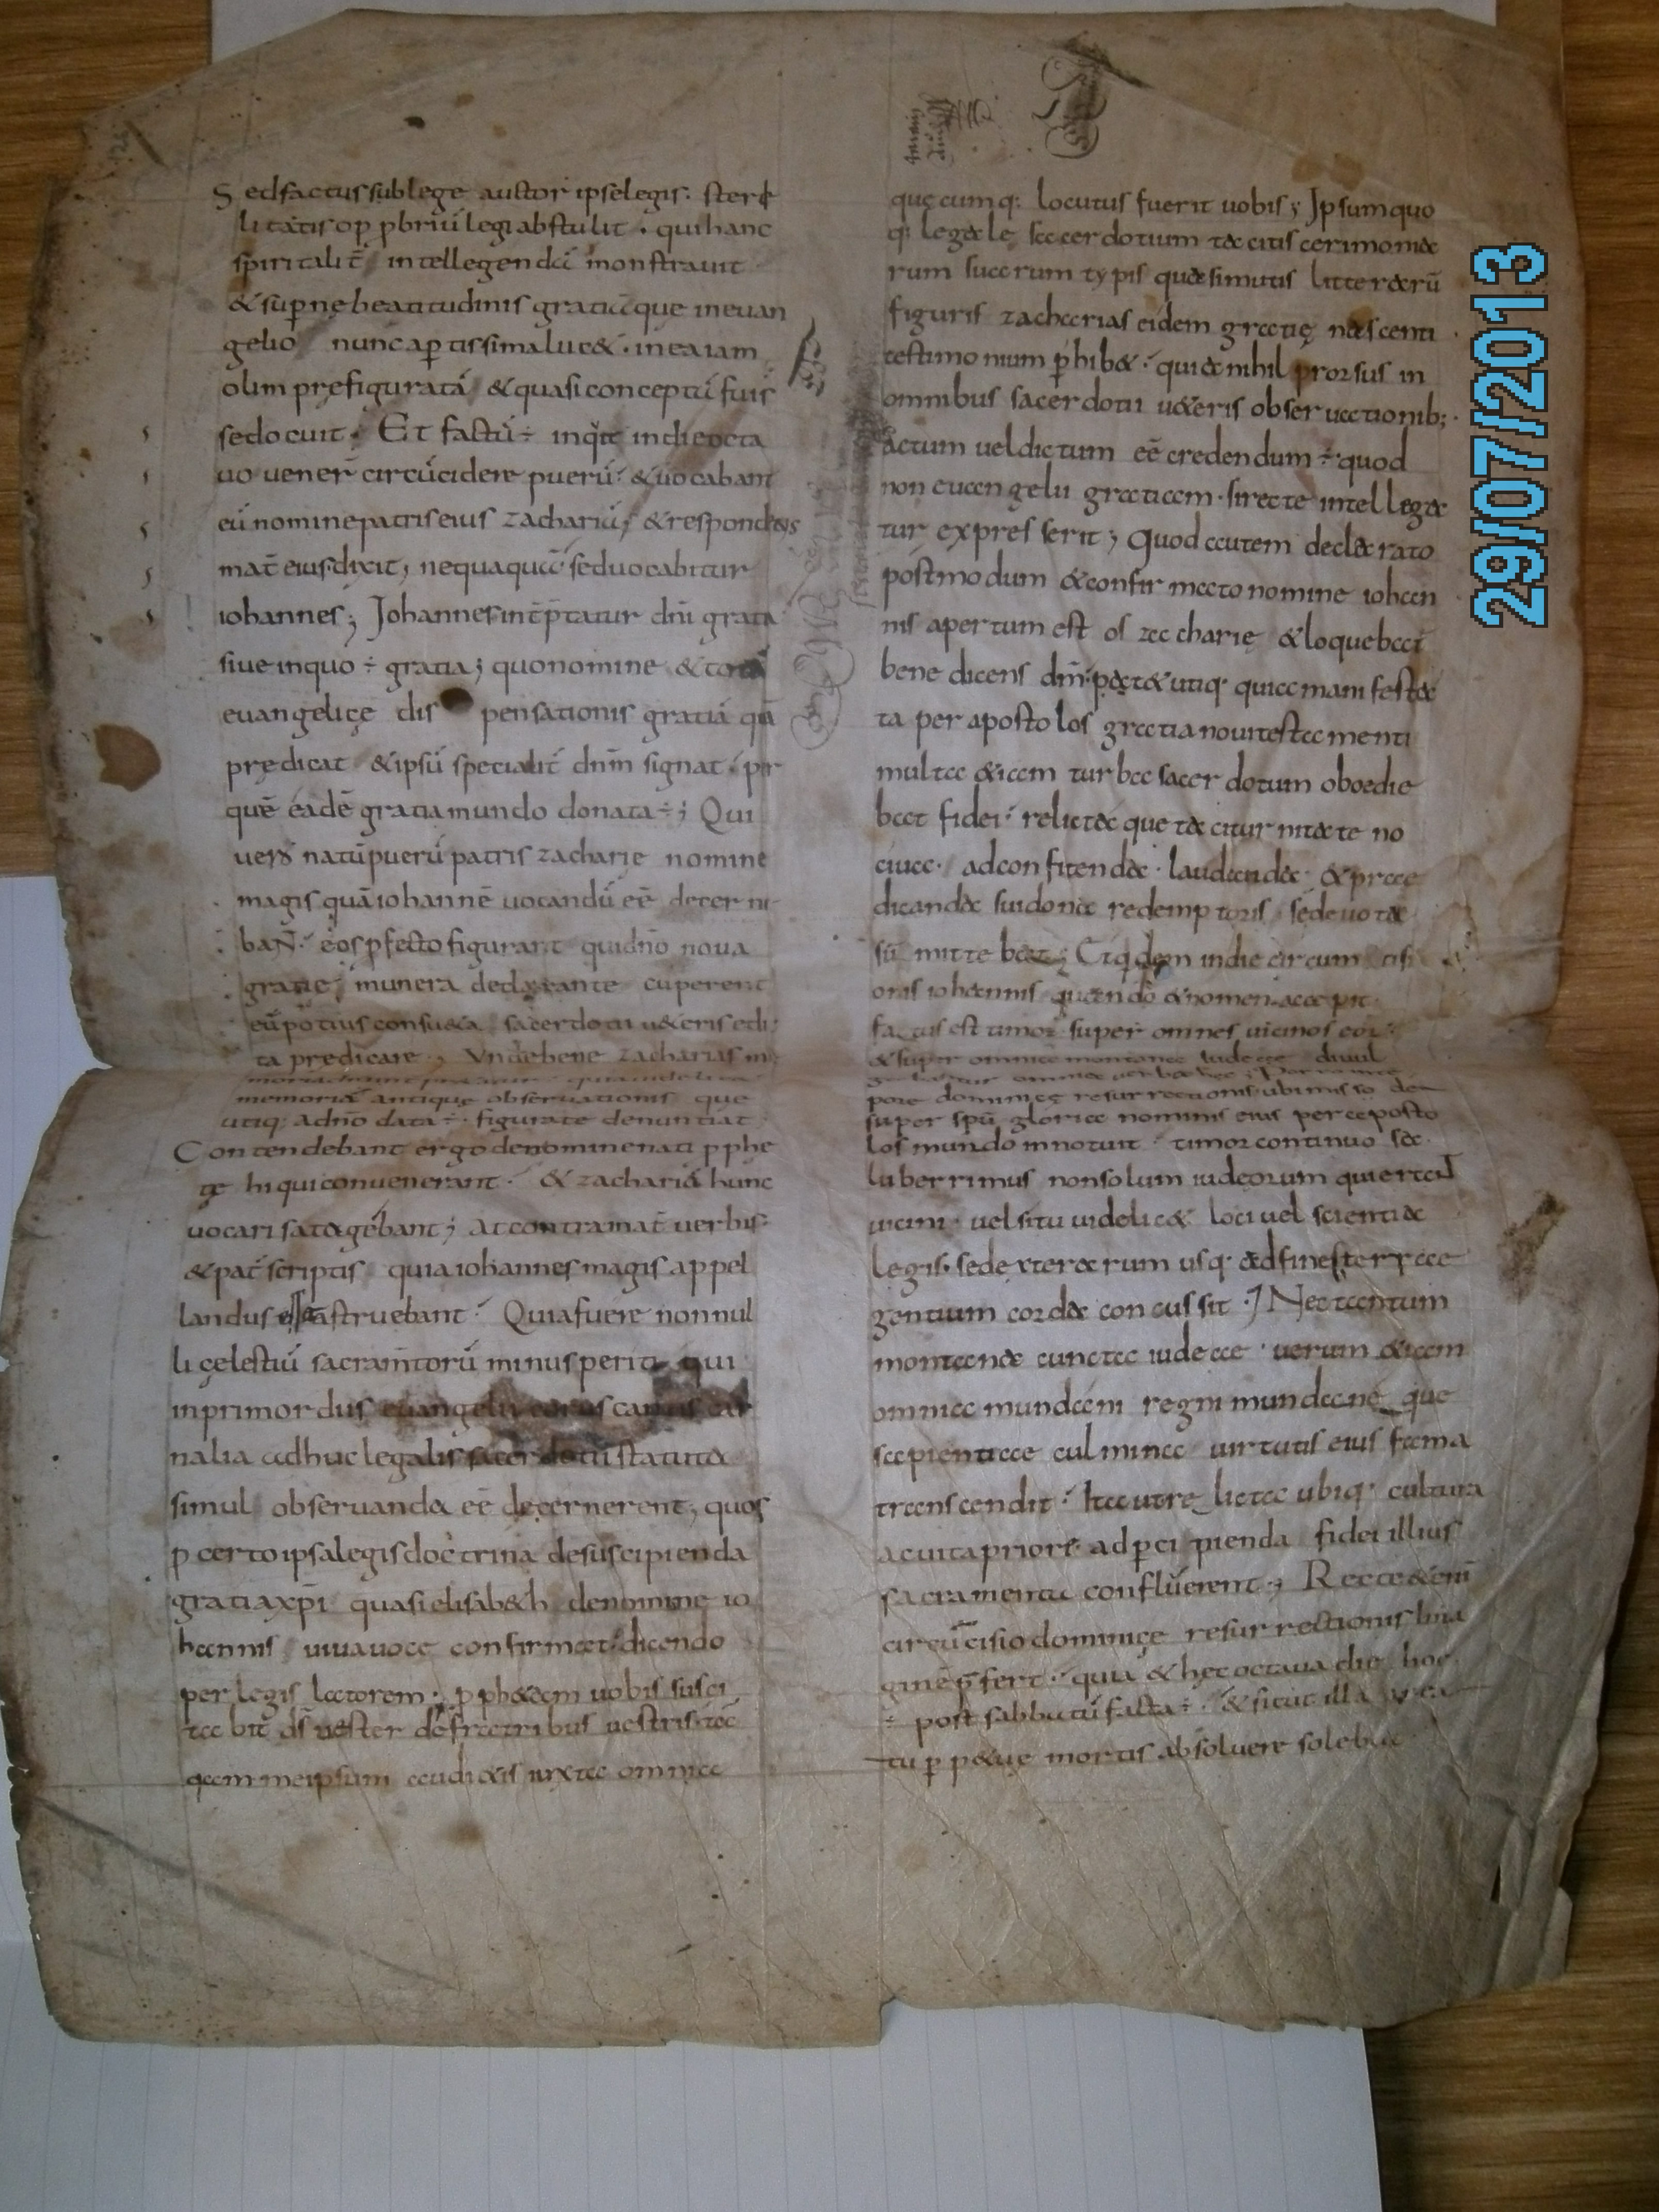 Sed factus sub lege auctor ipse legis: steri
litatis opp̱briū legi abstulit · qui hanc
spiritalit̄ intellegendā monstravit
& sup̱ne beatitudinis gratiā que in euan
gelio nunc ap̱tissima luc& · in ea iam
olim prefiguratā & quasi conceptū fuis
se docuit · Et factū ÷ inquit in die octa
uo vener̄ circūcidere puerū · & uocabant
eū nomine patris eius zachariā; & respondens
mat̄ eius dixit, nequaquā sed uocabitur
iohannes; Johannes int̄p̱tatur dn̄i gratia
siue in quo ÷ gratia; quo nomine & totā
euangelicę dispensationis gratiā quā
prędicat & ipsū specialit̄ dn̄m signat · per
quē eadē gratia mundo donata ÷; Qui
uero natū puerū patris zacharię nomine
magis quā iohannē uocandū eē decerni
bant · eos p̱fecto figurant qui dn̄o noua
gratię munera declarante cuperent
eū potius consueta sacerdotii u&eris edi
ta predicare; Vnde bene zacharias in
memoriā antique obseruationis que
utiq; a dn̄o data ÷ · figurate denuntiat
Contendebant ergo de nomine nati p̱phe
tę hi qui convenerant · & zachariā hunc
vocari satagebant; at contra mat̄ uerbis
& pat̄ scriptis quia iohannes magis appel
landus esset astruebant · Quia fuere nonnul
li cęlestiū sacram̄torū minus periti qui
in primordiis euangelii eorus can̄is car
nalia adhuc legalis sacerdotii statuta
simul obseruanda eē decernerent; quos
p̱ certo ipsa legis doctrina de suscipienda
gratia xp̄i quasi elisab&h de nomine io
hannis uiua uoce confirmat · dicendo
per legis latorem · p̱ph&am uobis susci
tabit d̄s uester de fratribus uestris · tā
quam me ipsum audi&is iuxta omnia
quęcumq; locutus fuerit uobis; Jpsum quo
q; legale sacerdotium tacitis cerimonia
rum sacrarum typis quasi mutis litterarū
figuris zacharias eidem gratię nascenti
testimonium p̱hib& · quia nihil prorsus in
omnibus sacerdotii u&eris obseruationib;
actum uel dictum eē credendum ÷ · quod
non euangelii gratiam · si recte intellega
tur expresserit; Quod autem declarato
postmodum & confirmato nomine iohan
nis apertum est os zacharię & loquebat
benedicens dn̄m · pat& utiq; quia manifesta
ta per apostolos gratia noui testamenti
multa &iam turba sacerdotum oboedie
bat fidei · relictaque taciturnitate no
ciua · ad confitenda · laudanda · & prae
dicanda sui dona redemptoris se deuota
sū mittebat; At quidem in die circumcisi
onis iohannis quando & nomen accepit
factus est timor super omnes uicinos eor̄
& super omnia montana iudeae diuul
gabantur omnia uerba hęc; Porro tem
pore dominicę resurrectionis ubi misso de
super sp̄u gloria nominis eius per aposto
los mundo innotuit · timor continuo sa
luberrimus non solum iudeorum qui erant
uicini · uel situ uidelic& loci uel scientia
legis · sed exterarum usq; ad fines terrae
gentium corda concussit · Nec tantum
montana cuncta iudeae · uerum &iam
omnia mundani regni mundanęque
sapientiae culmina uirtutis eius fama
transcendit · Ita ut relicta ubiq; cultura
ac uita priore ad p̱cipienda fidei illius
sacramenta confluerent; Recte &eni
circūcisio dominicę resurrectionis ima
ginē p̱fert · quia & hęc octaua die hoc
÷ post sabbatū facta ÷ · & sicut illa a rea
tu p̱p&uę mortis absoluere solebat
29/07/2013